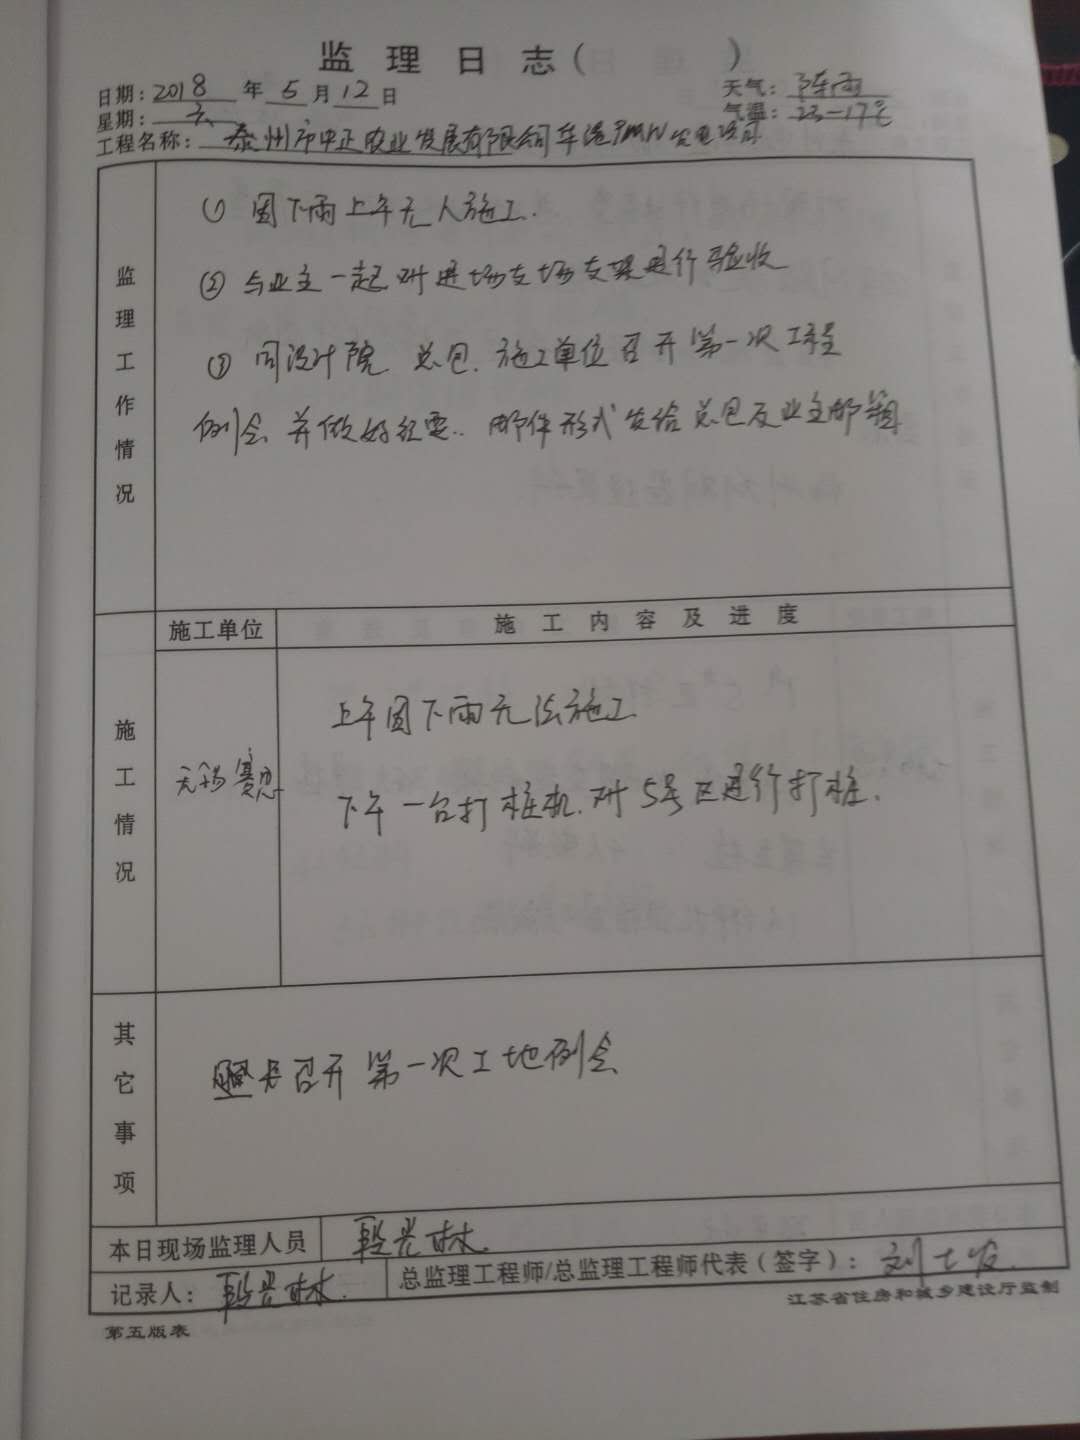 监理日志( )
日期:2018年5月12日 天气:阵雨
星期:六 气温:23-17℃
工程名称:泰州市中正农业发展有限公司 发电项目
监理工作情况
① 因下雨上午无人施工.
② 与业主一起对进场支场支架进行验收
③ 同设计院 总包.施工单位召开第一次工程
例会 并做好纪要.. 邮件形式发给总包及业主邮箱
施工情况
施工单位 施工内容及进度
上午因下雨无法施工
无锡
下午一台打桩机.对5号区进行打桩.
其它事项
召开第一次工地例会
本日现场监理人员
记录人: 总监理工程师/总监理工程师代表(签字):
第五版表 江苏省住房和城乡建设厅监制